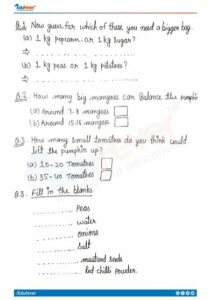 Edufever
Q.1 Now guess for which of these you need a bigger bag.
(a) 1 kg popcorn or 1 kg sugar?
(b) 1 kg peas or 1 kg potatoes?
Q.2. How many big mangoes can balance the pumpkin
(a) Around 7-8 mangoes
(b) Around 15-16 mangoes
Q.3 How many small tomatoes do you think could
lift the pumpkin up?
(a) 10-20 Tomatoes
(b) 35-40 Tomatoes
Q.3. Fill in the blanks.
Peas
water
onions
salt
mustard seeds
Red chilli powder.
/Edufever